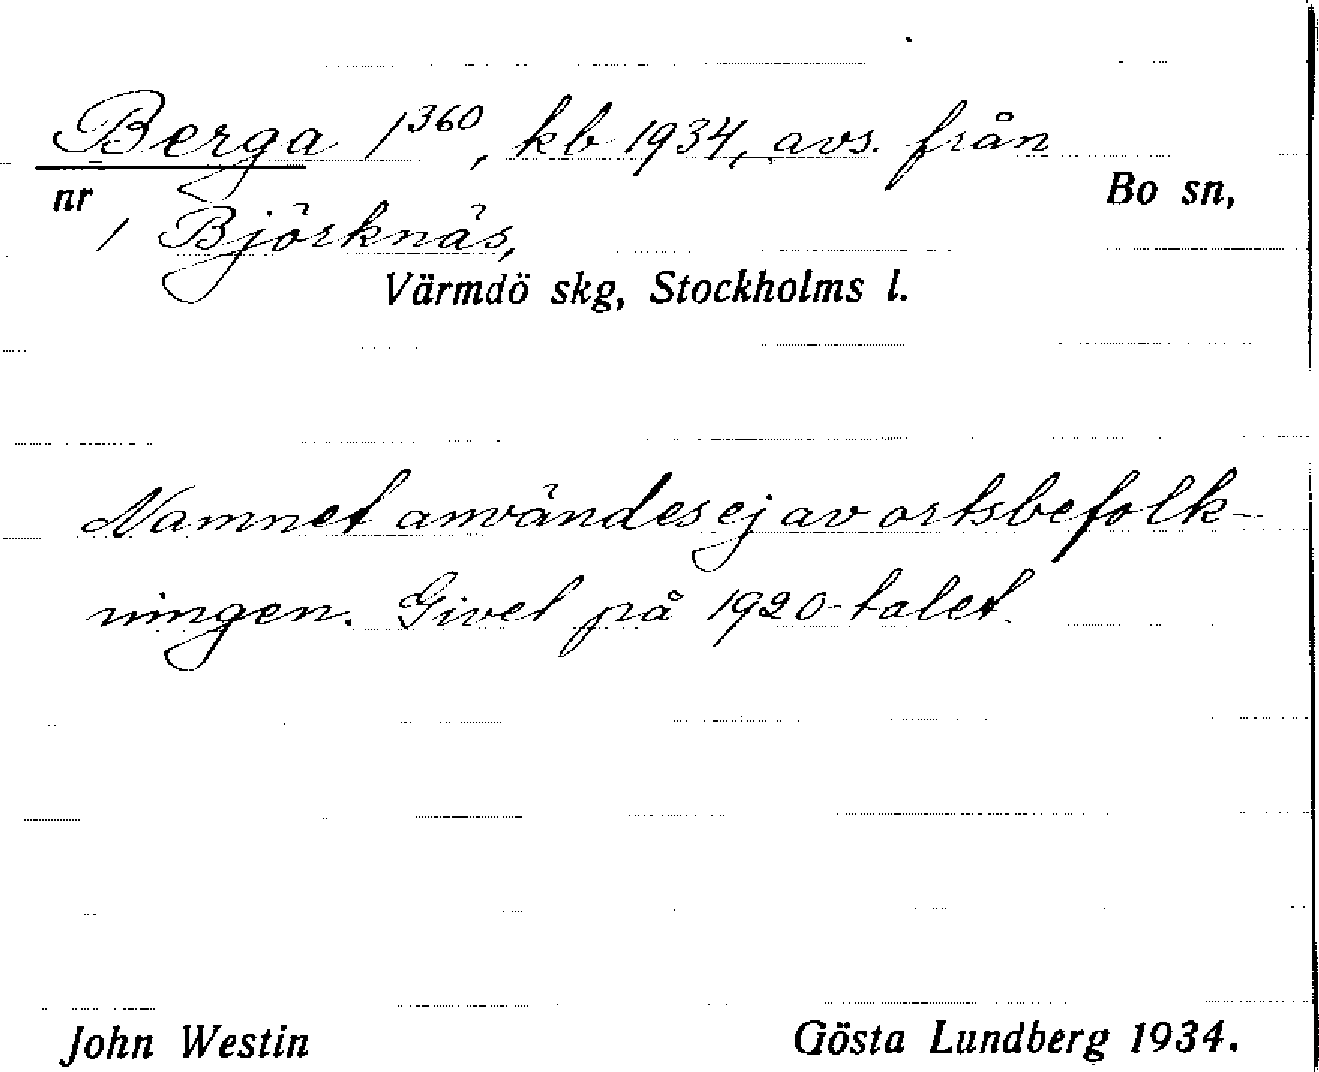 Berga 1³⁶⁰, kb 1934, avs. från
nr Bo sn,
1 Björknäs,
Värmdö skg, Stockholms l.
Namnet användes ej av ortsbefolk-
ningen. Givet på 1920-talet.
John Westin Gösta Lundberg 1934.